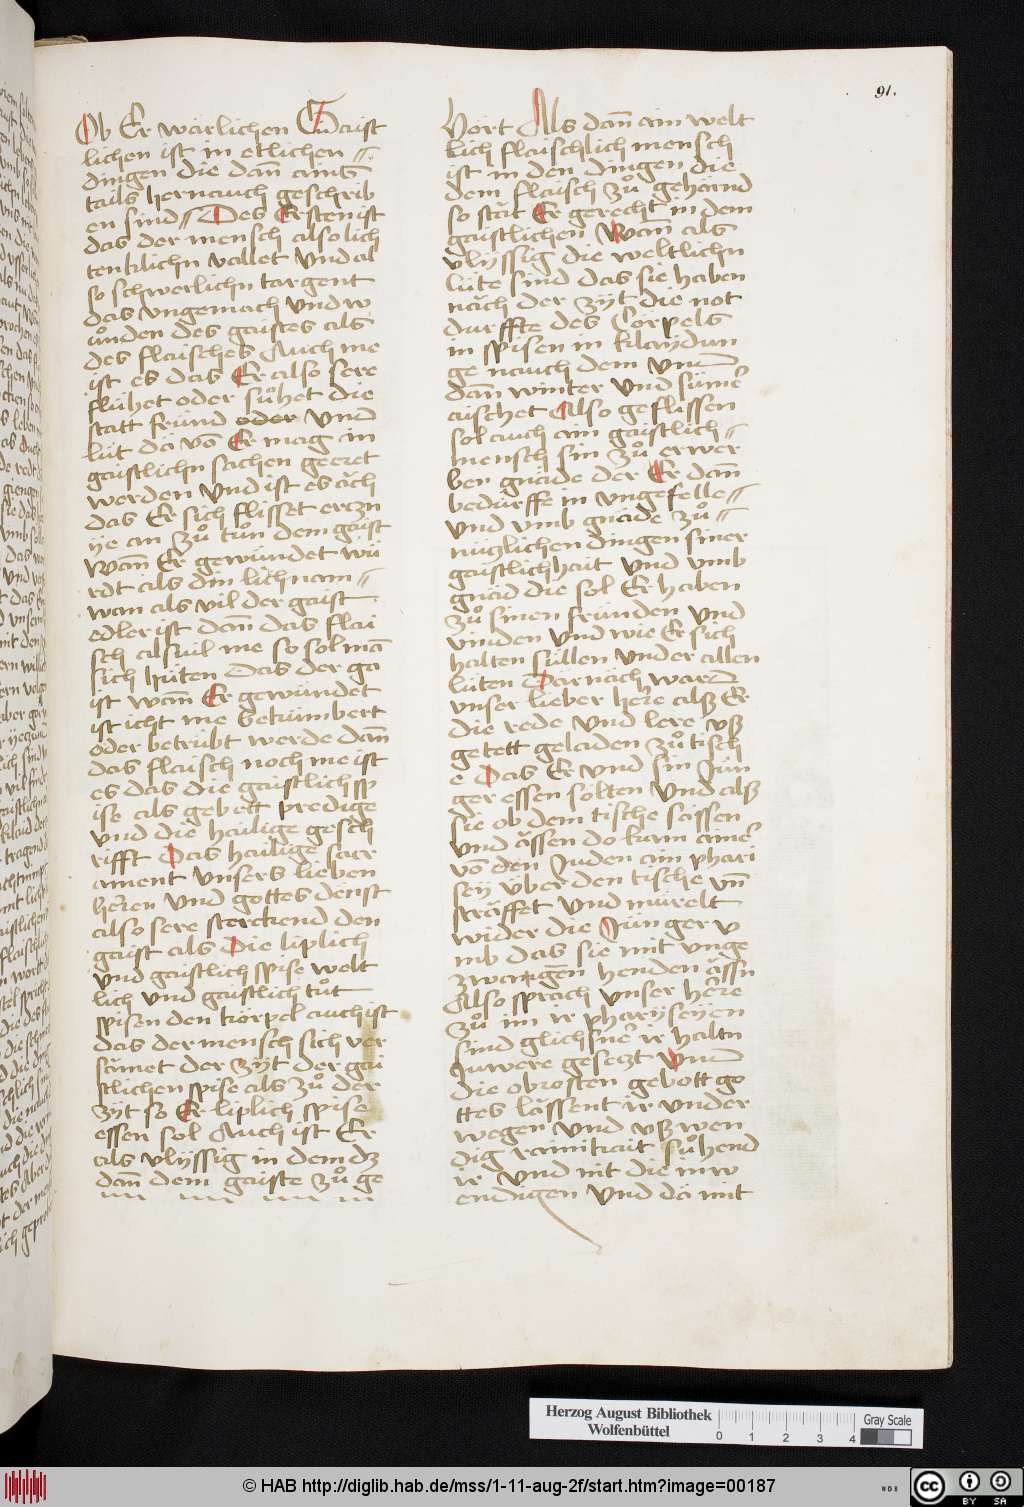 91.
Ob Er wärlichen Gaist
lichen ist in etlichen
dingen die dan̄ ains
tails hernauch geschrib
en sind Des Ersten ist
das der mensch als olich
tentklichn vallet Vnd al
so schwerlichn targent
das vngemach Vnd w
ůnden des gaistes als
des flaisches Auch me
ist es das Er also sere
flühet oder sůhet die
statt fründ oder Vnd
lüt dā vō Er mag in
gaistlichn sachen geeret
werden Vnd ist es äch
das Er sich flisset erzn
ÿe an zů tůn dem gaist
Wan̄ Er gewündet wü
rdt als din lichnam
wan als vil der gaist
edler ist dan̄ das flai
sch als uil me so sol mā
sich hüten Das der ga
ist wan̄ Er gewündet
ist icht me bekümbert
oder betrübt werde dan̄
das flaisch noch me ist
es das die gaistlich sp
ise als gebett predige
vnd die hailige gesch
rifft Das hailige sacr
ament Vnsers lieben
herren Vnd gottes denst
also sere sterckend den
gaist als Die liplich
Vnd gaistlich spise welt
lich vnd gaistlich tůt
spisen den körpel auch ist
das der mensch sich ver
sämet der zÿt der gai
stlichen spise als zů der
zÿt so Er liplich spise
essen sol Auch ist Er
als vlÿssig in dem dz
dan̄ dem gaiste zů ge
hört Als dan̄ ain welt
klich flaischlich mensch
ist in den dingen die
dem flaisch zů gehörnd
so stät Er gerecht in dem
gaistlichen Wan̄ als
vlÿssig die weltlichn
lüte sind das sie haben
näch der zÿt die not
durffte des Cörpels
in spisen in klaÿdun
ge nauch dem Vnd
dan̄ winter Vnd sümer
aischet Also geflissen
sol auch ain gaistlich
mensch sin zů erwer
ben gnäde der Er dan̄
bedürffe in vngefelle
Vnd vmb gnäde zů
nüzlichen dingen siner
gaistlichhait Vnd vmb
gnäd die sol Er haben
zů sinen fründen Vnd
vinden Vnd wie Er sich
halten süllen Vnder allen
lüten Darnäch ward
vnser lieber here alß Er
die rede Vnd lere vß
getett geladen zů tisch
e Das Er Vnd sin Jün
ger essen solten Vnd alß
sie ob dem tische sässen
Vnd ässen do kam ainer
vō den Juden ain phari
seÿ über den tische vn̄
sträffet Vnd mürelt
wider die Jünger v
mb das sie mit vnge
zwangen henden ässn
Also sprach Vnser here
zů im ir pharÿseÿen
sind glichsner ir haltn
Juwere gesetzt Vnd
die obrosten gebott go
ttes lässent ir vnder
wegen Vnd vßwen
dig rainikait sůhend
ir Vnd nit die inw
endigen Vnd dä mit
Herzog August Bibliothek
Wolfenbüttel
0 1 2 3 4
Gray Scale
© HAB http://diglib.hab.de/mss/1-11-aug-2f/start.htm?image=00187
WDB
cc BY SA